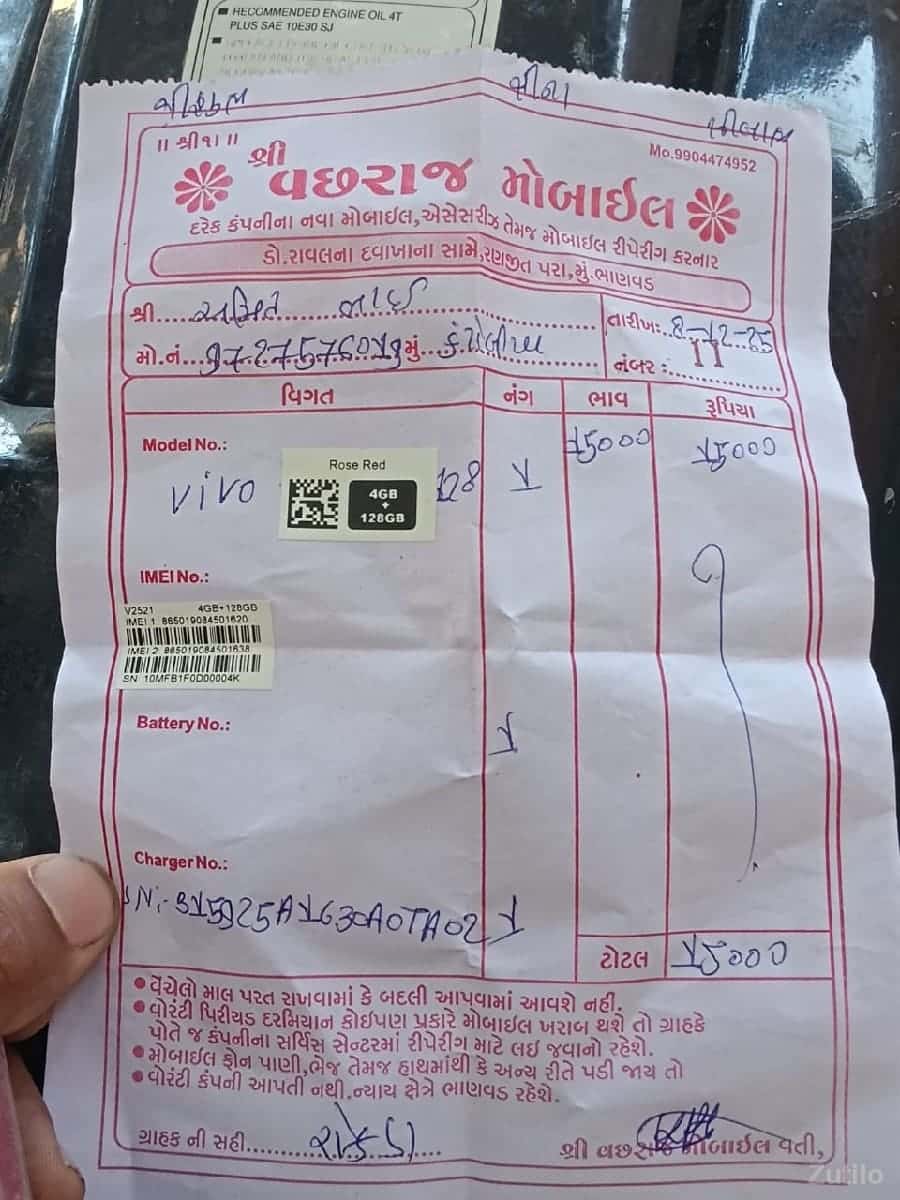 RECOMMENDED ENGINE OIL 4T
PLUS SAE 10E30 SJ
॥ શ્રી૧। ॥
Mo.9904474952
શ્રી
વછરાજ મોબાઈલ
દરેક કંપનીના નવા મોબાઈલ,એસેસરીઝ તેમજ મોબાઈલ રીપેરીંગ કરનાર
ડો.રાવલના દવાખાના સામે,રણજીત પરા,મું.ભાણવડ
શ્રી..... ભાઈ
તારીખ:..8-12-25
મો.નં... મું..
નંબર :
વિગત નંગ ભાવ રૂપિયા
Model No.:
15000 15000
Rose Red
vivo 128 1
4GB
+
128GB
IMEI No.:
V2521 4GB+128GB
IMEI 1: 865019084501620
IMEI 2: 865019084501638
SN: 10MFB1F0D00004K
Battery No.:
1
Charger No.:
1
ટોટલ 15000
વેંચેલો માલ પરત રાખવામાં કે બદલી આપવામાં આવશે નહી.
વોરંટી પિરીયડ દરમિયાન કોઈપણ પ્રકારે મોબાઈલ ખરાબ થશે તો ગ્રાહકે
પોતે જ કંપનીના સર્વિસ સેન્ટરમાં રીપેરીંગ માટે લઈ જવાનો રહેશે.
મોબાઈલ ફોન પાણી,ભેજ તેમજ હાથમાંથી કે અન્ય રીતે પડી જાય તો
વોરંટી કંપની આપતી નથી.ન્યાય ક્ષેત્રે ભાણવડ રહેશે.
ગ્રાહક ની સહી............
શ્રી વછરાજ મોબાઈલ વતી,
Zutilo